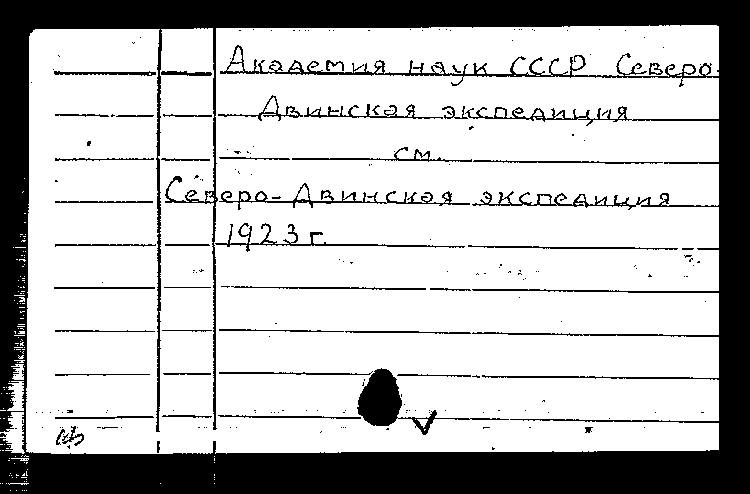 Академия наук СССР Северо-
Двинская экспедиция
см.
Северо-Двинская экспедиция
1923 г.